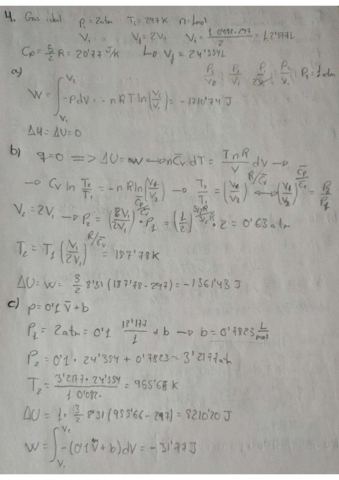 4. Gas ideal P₁=2atm T₁=297K n=1mol
V₁ V₂=2V₁ V₁= = 12'177L
Cp=5/2 R=20'77 J/K V₂=24'354L
a)
P₂=1atm
W=∫-pdV=-nRTln(V₂/V₁)=-1710'74J
ΔH=ΔU=0
b) q=0 => ΔU=w → nC̄v dT= TnR/V dV →
→ Cv ln T₂/T₁=-nRln(V₂/V₁) → T₂/T₁=(V₁/V₂)^R/C̄v = P₂/P₁
V₂=2V₁ → P₂=(V₁/2V₁) · P₁=(1/2) · 2=0'63atm
T₂=T₁(V₁/2V₁)^R/C̄v=187'78K
ΔU=W= 3/2 8'31(187'78-297)=-1361'43J
c) p=0'1 V̄+b
P₁=2atm=0'1 12'177/1 +b → b=0'7823 L/mol
P₂=0'1·24'354+0'7823=3'2177atm
T₂= 3'2177·24'354/1·0'082 =955'66K
ΔU=1·3/2 8'31(955'66-297)=8210'20J
W=∫-(0'1V̄+b)dV=-31'77J